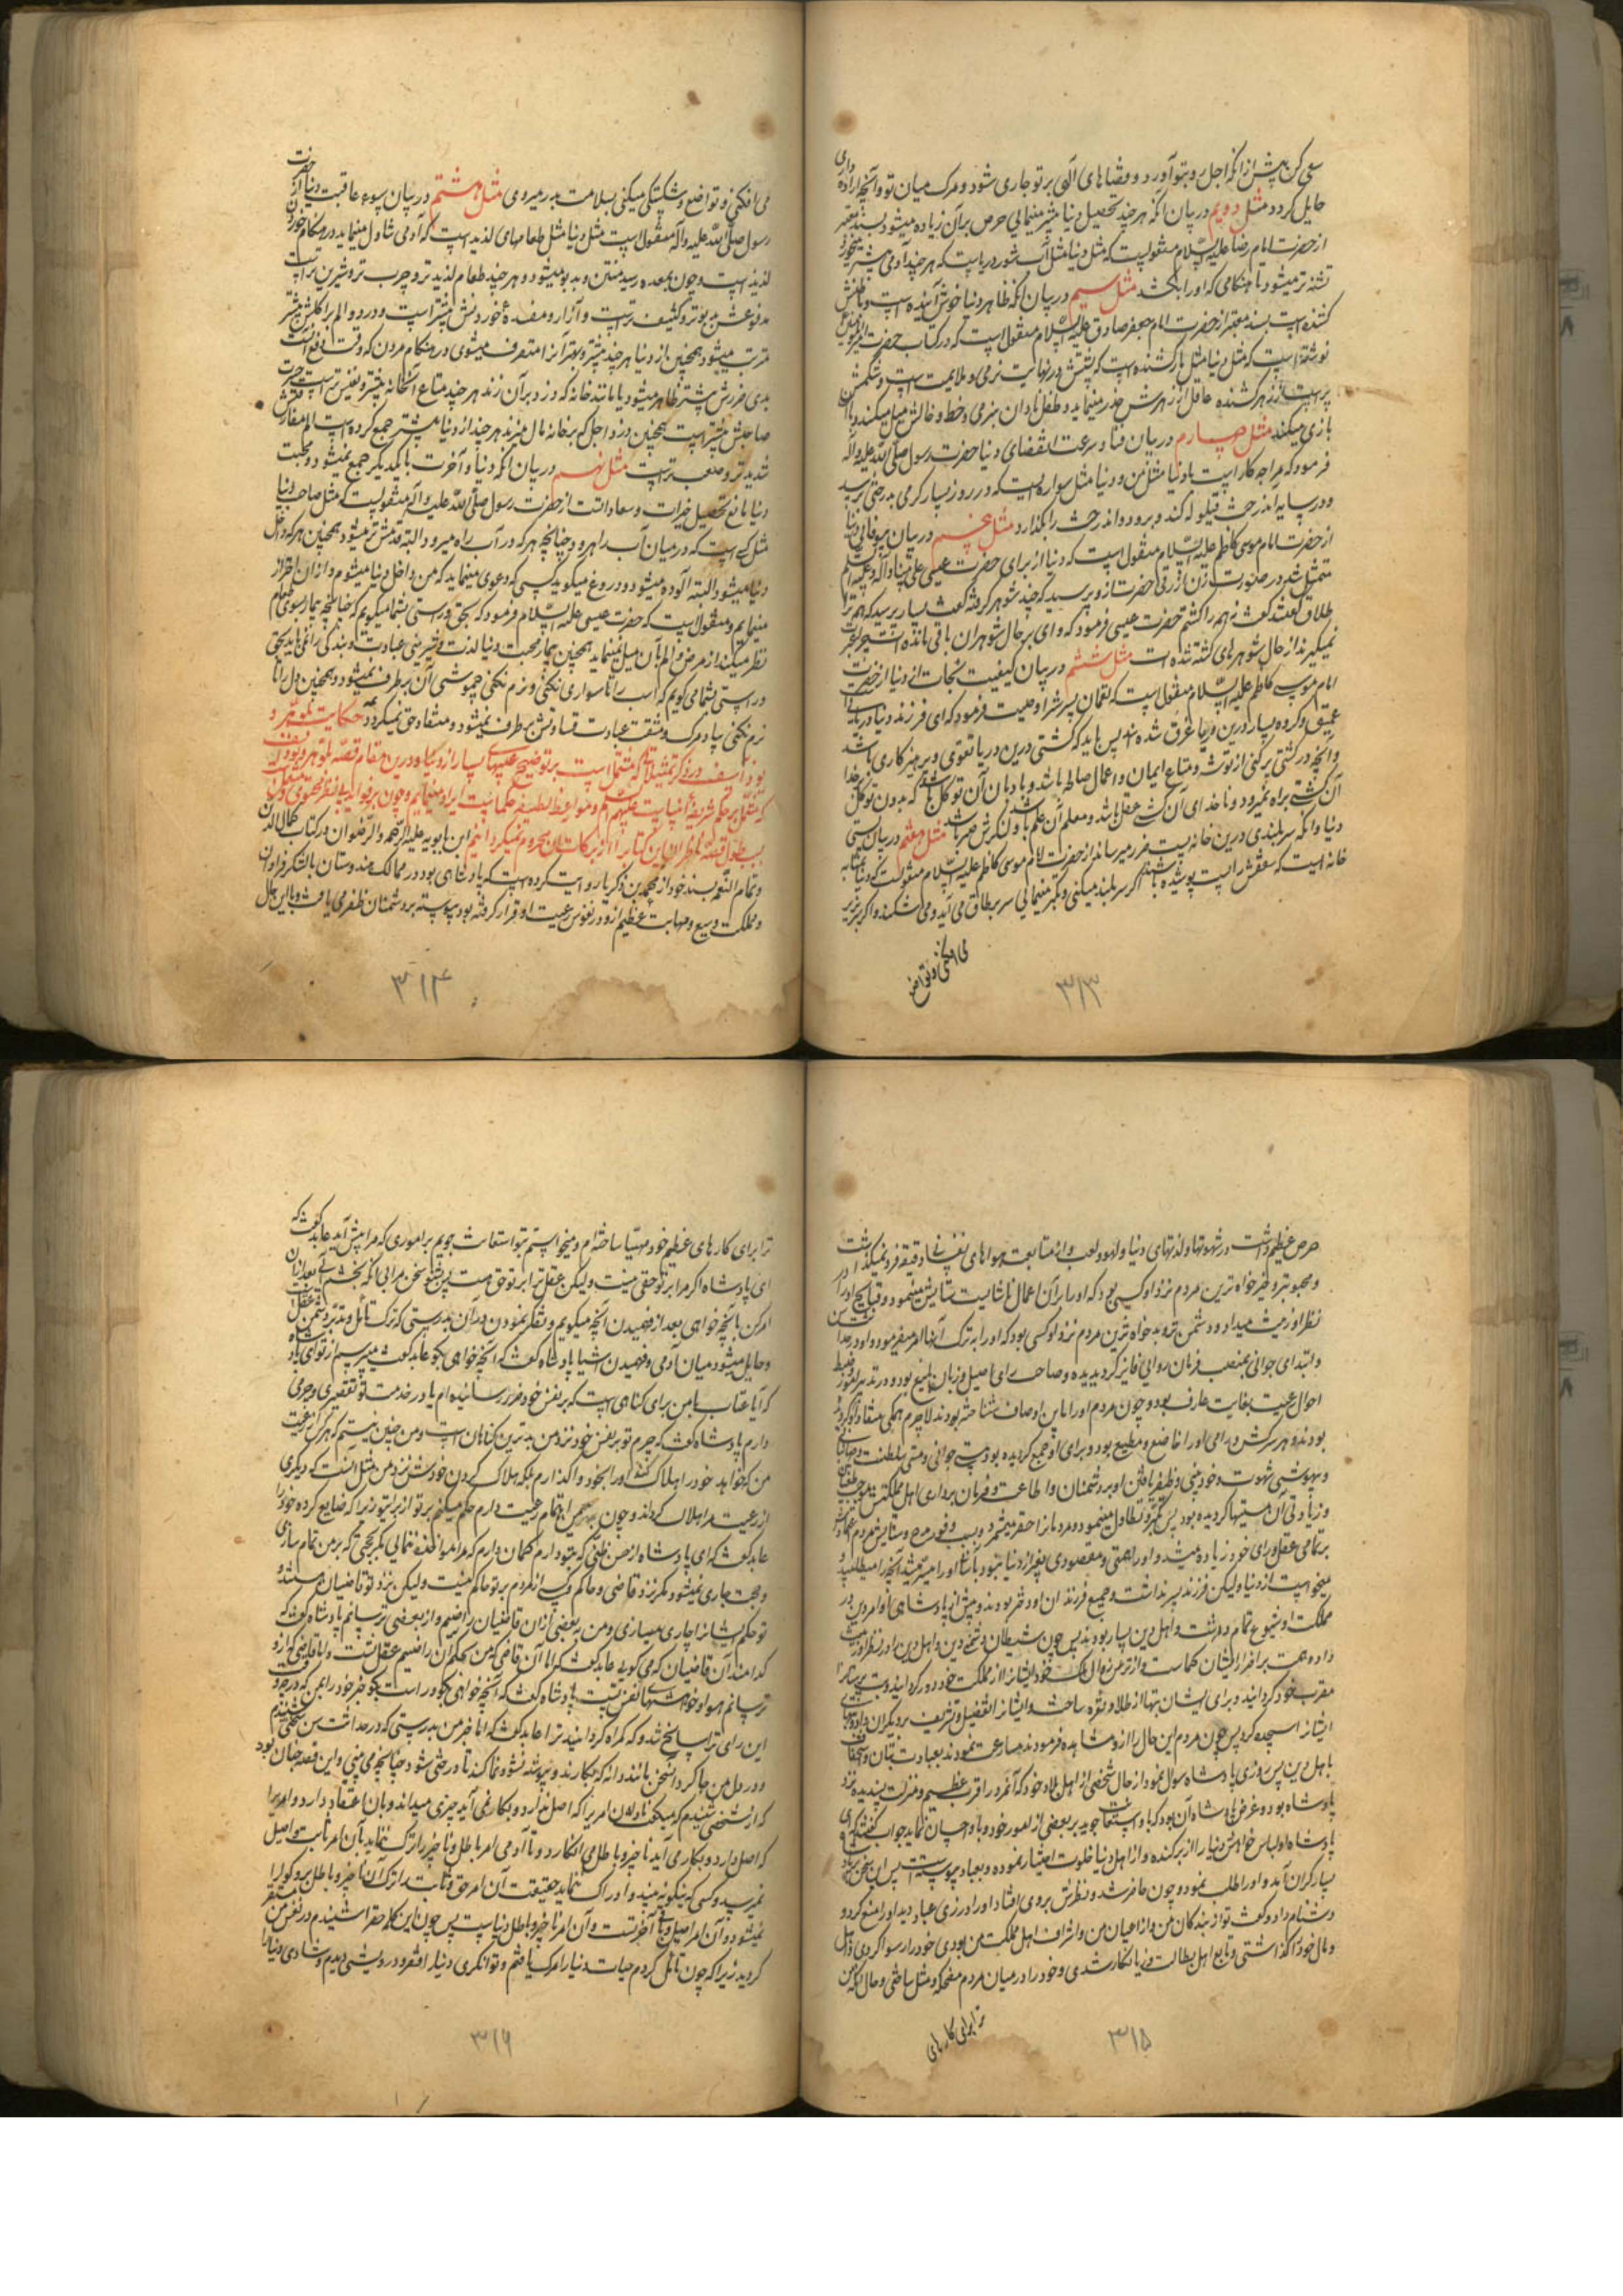 سعی کن پیش از آنکه اجل رو بتو آورد و قضاهای الهی بر تو جاری شود و مرک میان تو و آنچه اراده داری
حایل کردد مثل دویم در بیان آنکه هر چند تحصیل دنیا بیشتر مینمایی حرص بر آن زیاده میشود بسند معتبر
از حضرت امام رضا علیه السلام منقولست که مثل دنیا مثل آب شور دریاست که هر چند آدمی بیشتر میخورد
تشنه تر میشود تا هنکامی که او را بکشد مثل سیم در بیان آنکه ظاهر دنیا خوش آینده است و باطنش
کشنده است بسند معتبر از حضرت امام جعفر صادق علیه السلام منقول است که در کتاب حضرت امیر المؤمنین
نوشته است که مثل دنیا مثل مار کشنده است که پشتش در نهایت نرمی و ملایمت است و شکمش
پر است از زهر کشنده عاقل از زهرش حذر مینماید و طفل نادان بنرمی و خط و خالش میل میکند و با آن
بازی میکند مثل چهارم در بیان فنا و سرعت انقضای دنیا حضرت رسول صلی الله علیه و آله
فرمود که مرا چه کار است با دنیا مثل من و دنیا مثل سواره ایست که در روز بسیار کرمی بدرختی برسد
و در سایه آن درخت قیلوله کند و برود و آن درخت را بکذارد مثل پنجم در بیان بیوفائی دنیا
از حضرت امام موسی کاظم علیه السلام منقول است که دنیا از برای حضرت عیسی علی نبینا و آله و علیه السلام
متمثل شد در صورت زن ازرقی حضرت ازو پرسید که چند شوهر کرفته کفت بسیار پرسید که همه ترا
طلاق کفتند کفت نه همه را کشتم حضرت عیسی فرمود که وای بر حال شوهران باقی مانده است چرا عبرت
نمیکیرند از حال شوهرهای کشته شده ات مثل ششم در بیان کیفیت نجات از دنیا از حضرت
امام موسی کاظم علیه السلام منقول است که لقمان پسرش را وصیت فرمود که ای فرزند دنیا دریائیست
عمیق و کروه بسیار درین دریا غرق شده اند پس باید که کشتی درین دریا تقوی و پرهیزکاری باشد
و آنچه در کشتی پر کنی از توشه و متاع ایمان و اعمال صالحه باشد و بادبان آن توکل باشد که بدون توکل بر خدا
آن کشتی براه نمیرود و ناخدای آن کشتی عقل باشد و معلم آن علم باشد و لنکرش صبر باشد مثل هفتم در بیان پستی
دنیا و آنکه سربلندی درین خانه پست ضرر میرساند از حضرت امام موسی کاظم علیه السلام منقولست که دنیا بمثابه
خانه ایست که سقفش را پست پوشیده باشند اکر سر بلند میکنی و تکبر مینمائی سر بر طاق می آید و می شکند و اکر بزیر
می افکنی و تواضع
۳۱۳
می افکنی و تواضع و شکستکی میکنی بسلامت بدر میروی مثل هشتم در بیان سوء عاقبت دنیا از حضرت
رسول صلی الله علیه و آله منقول است مثل دنیا مثل طعامهای لذیذ است که آدمی تناول مینماید در هنکام خوردن
لذیذ است و چون بمعده رسید متعفن و بدبو میشود و هر چند طعام لذیذتر و چرب تر و شیرین تر است
مدفوعش بدبوتر و کثیف تر است و آزار و مفسدهٔ خوردنش بیشتر است و درد و الم بر اکلش بیشتر
مترتب میشود همچنین از دنیا هر چند بیشتر و بهتر آنرا متصرف میشوی در هنکام مردن که وقت دفع آنست
بدی و ضررش بیشتر ظاهر میشود یا مانند خانه که دزد بر آن زند هر چند متاع آنخانه بیشتر و نفیس تر است حسرت
صاحبش بیشتر است همچنین دزد اجل که بر خانه مال میزند هر چند از دنیا بیشتر جمع کرده است الم مفارقتش
شدیدتر و صعب تر است مثل نهم در بیان آنکه دنیا و آخرت با یکدیکر جمع نمیشود و محبت
دنیا مانع تحصیل خیرات و سعاداتست از حضرت رسول صلی الله علیه و آله منقولست که مثل صاحب دنیا
مثل کسی است که در میان آب راه رود چنانچه هر که در آب راه میرود البته قدمش تر میشود همچنین هر که داخل
دنیا میشود البته آلوده میشود و دروغ میکوید کسی که دعوی مینماید که من داخل دنیا میشوم و از آن احتراز
مینمایم و منقول است که حضرت عیسی علیه السلام فرمود که بحق و راستی بشما میکویم که چنانچه بیمار بسوی طعام
نظر میکند از مرض و الم بآن میل نمینماید همچنین بیمار محبت دنیا لذت و شیرینی عبادت و بندکی را نمی یابد بحق
و راستی بشما می کویم که اسب را تا سواری نکنی و نرم نکنی چموشی آن بر طرف نمیشود و همچنین دل را تا
نرم نکنی بیاد مرک و مشقت عبادت قساوتش برطرف نمیشود و منقاد حق نمیکردد حکایت بلوهر و
یوذاسف در ذکر تمثیلاتی که مشتمل است بر توضیح عیبهای بسیار از دنیا و درین مقام قصهٔ بلوهر و یوذاسف
که مشتمل بر حکم شریفهٔ انبیا است علیهم السلام و مواعظ لطیفهٔ حکما است ایراد مینمایم و چون بر فواید بی انتها محتوی است
بسبب طول قصه ناظران این کتاب را از برکات آن محروم نمیکردانیم ابن بابویه علیه الرحمه و الرضوان در کتاب کمال الدین
و تمام النعمه بسند خود از محمد بن زکریا روایت کرده است که پادشاهی بود در ممالک هندوستان با لشکر فراوان
و مملکت وسیع و مهابت عظیم ازو در نفوس رعیت او قرار کرفته بود پیوسته بر دشمنان ظفر می یافت و با این حال
۳۱۴
حرص عظیم داشت در شهوتها و لذتهای دنیا و لهو و لعب و از متابعت هواهای نفسانی دقیقه فرو نمیکذاشت
و محبوبتر و خیرخواه ترین مردم نزد او کسی بود که او را بر آن اعمال ناشایست ستایش مینمود و قبایح او را در
نظر او زینت میداد و دشمن تر و بدخواه ترین مردم نزد او کسی بود که او را به ترک آنها امر میفرمود و او در حداثت سن
و ابتدای جوانی بمنصب فرمان روایی فایز کردیده و صاحب رای اصیل و زبان بلیغ بود و در تدبیر امور و ضبط
احوال رعیت بغایت عارف بود و چون مردم او را باین اوصاف شناخته بودند لاجرم همکی منقاد او کردیده
بودند و هر سرکش و رامی او را خاضع و مطیع بود و برای او جمع کردیده بود مستی جوانی و مستی سلطنت و جهانبانی
و بیهوشی شهوت و خودبینی و ظفر یافتن او بر دشمنان و اطاعت و فرمان برداری اهل مملکتش موجب طغیان
و زیادتی آن مستیها کردیده بود پس تکبر و تطاول مینمود و مردمانرا حقیر میشمرد و بسبب وفور مدح و ستایش مردم اعتماد او
بر تمامی عقل و رای خود زیاده میشد و او را همتی و مقصودی بغیر از دنیا نبود و بآسانی او را میسر میشد آنچه را میطلبید و
میخواست از دنیا ولیکن فرزند پسر نداشت و جمیع فرزندان او دختر بودند و پیش از پادشاهی او امر دین در
مملکت او شیوع تمام داشت و اهل دین بسیار بودند پس چون شیطان دشمنی دین و اهل دین را در نظر او زینت
داده همت بر اضرار ایشان کماشت و از ترس زوال ملک خود ایشانرا از مملکت خود دور کردانید و بت پرستانرا
مقرب خود کردانید و برای ایشان بتها از طلا و نقره ساخت و ایشانرا تفضیل و تشریف بر دیکران داد و بتهای
ایشانرا سجده کرد پس چون مردم این حال را ازو مشاهده فرمودند مسارعت نمودند بعبادت بتان و استخفاف
باهل دین پس روزی پادشاه سوال نمود از حال شخصی از اهل بلاد خود که آنمرد را قرب عظیم و منزلت پسندیده نزد
پادشاه بود و غرض پادشاه آن بود که باو استعانت جوید بر بعضی از امور خود و باو احسان نماید جواب کفتند که ای
پادشاه او لباس خواهش دنیا را از بر کنده و از اهل دنیا خلوت اختیار نموده و بعباد پیوسته است پس این سخن بر پادشاه
بسیار کران آمد و او را طلب نمود و چون حاضر شد و نظرش بر وی افتاد او را در زی عباد دید او را منع کرد و
دشنام داد و کفت تو از بندکان من و از اعیان من و اشراف اهل مملکت من بودی خود را رسوا کردی و اهل
و مال خود را کذاشتی و تابع اهل بطالت و زیانکار شدی و خود را در میان مردم مضحکه و مثل ساختی و حال آنکه من
ترا برای کارهای
۳۱۵
ترا برای کارهای عظیم خود مهیا ساخته ام و میخواستم بتو استعانت جویم بر اموری که مرا پیش آید عابد کفت که
ای پادشاه اکر مرا بر تو حقی نیست ولیکن عقل ترا بر تو حق هست پس بشنو سخن مرا بی آنکه بخشم آیی بعد از آن
امر کن بآنچه خواهی بعد از فهمیدن آنچه میکویم و تفکر نمودن در آن بدرستی که ترک تأمل و تدبر دشمن عقلست
و حایل میشود میان آدمی و فهمیدن اشیا پادشاه کفت که آنچه خواهی بکو عابد کفت میپرسم از تو ای پادشاه
که آیا عتاب تو با من برای کناهی است که بر نفس خود ضرر رسانیده ام یا در خدمت تو تقصیری و جرمی
دارم پادشاه کفت که جرم تو بر نفس خود نزد من بدترین کناهان است و من چنین نیستم که هر کس از رعیت
من که خواهد خود را هلاک کند او را بخود واکذارم بلکه هلاک کردن خودش نزد من مثل آنست که دیکری
از رعیت مرا هلاک کرداند و چون من اهتمام رعیت دارم حکم میکنم بر تو از برای تو زیرا که ضایع کرده خود را
عابد کفت که ای پادشاه از حسن ظنی که بتو دارم کمان دارم که مرا مواخذه ننمایی مکر بحجتی که بر من تمام سازی
و حجت جاری نمیشود مکر نزد قاضی و حاکم و کسی از مردم بر تو حاکم نیست ولیکن نزد تو قاضیان هستند و
تو حکم ایشانرا جاری میسازی و من به بعضی از آن قاضیان راضیم و از بعضی ترسانم پادشاه کفت که
کدامند آن قاضیان که می کویی عابد کفت که اما آن قاضی که من بحکم آن راضیم عقل تست و اما قاضی که ازو
ترسانم هوا و خواهشهای نفس تست پادشاه کفت که آنچه خواهی بکو و راست بکو خبر خود را بمن که در چه وقت
این رای ترا سانح شد و که کمراه کردانید ترا عابد کفت که اما خبر من بدرستی که در حداثت سن سخنی شنیدم
و در دل من جا کرد آنسخن مانند دانه که بکارند و پیوسته نشو و نما کند تا درختی شود چنانچه می بینی و این قصه چنان بود
که از شخصی شنیدم که میکفت نادان امریرا که اصل ندارد و بکار نمی آید چیزی میداند و بآن اعتقاد دارد و امریرا
که اصل دارد و بکار می آید ناچیز و باطل می انکارد و تا آدمی امر باطل و ناچیز را ترک ننماید بآن امر ثابت و اصیل
نمیرسد و کسی که نیکو نه بیند و ادراک ننماید حقیقت آن امر حق و ثابت را ترک آن ناچیز و باطل برو کوارا
نمیشود و آن امر اصیل و باقی آخرتست و آن امر ناچیز و باطل دنیاست پس چون این کلمه حقرا شنیدم در نفس من مستقر
کردید زیرا که چون تأمل کردم حیات دنیا را مرک یافتم و توانکری دنیا را فقر و درویشی دیدم و شادی دنیا را
۳۱۶